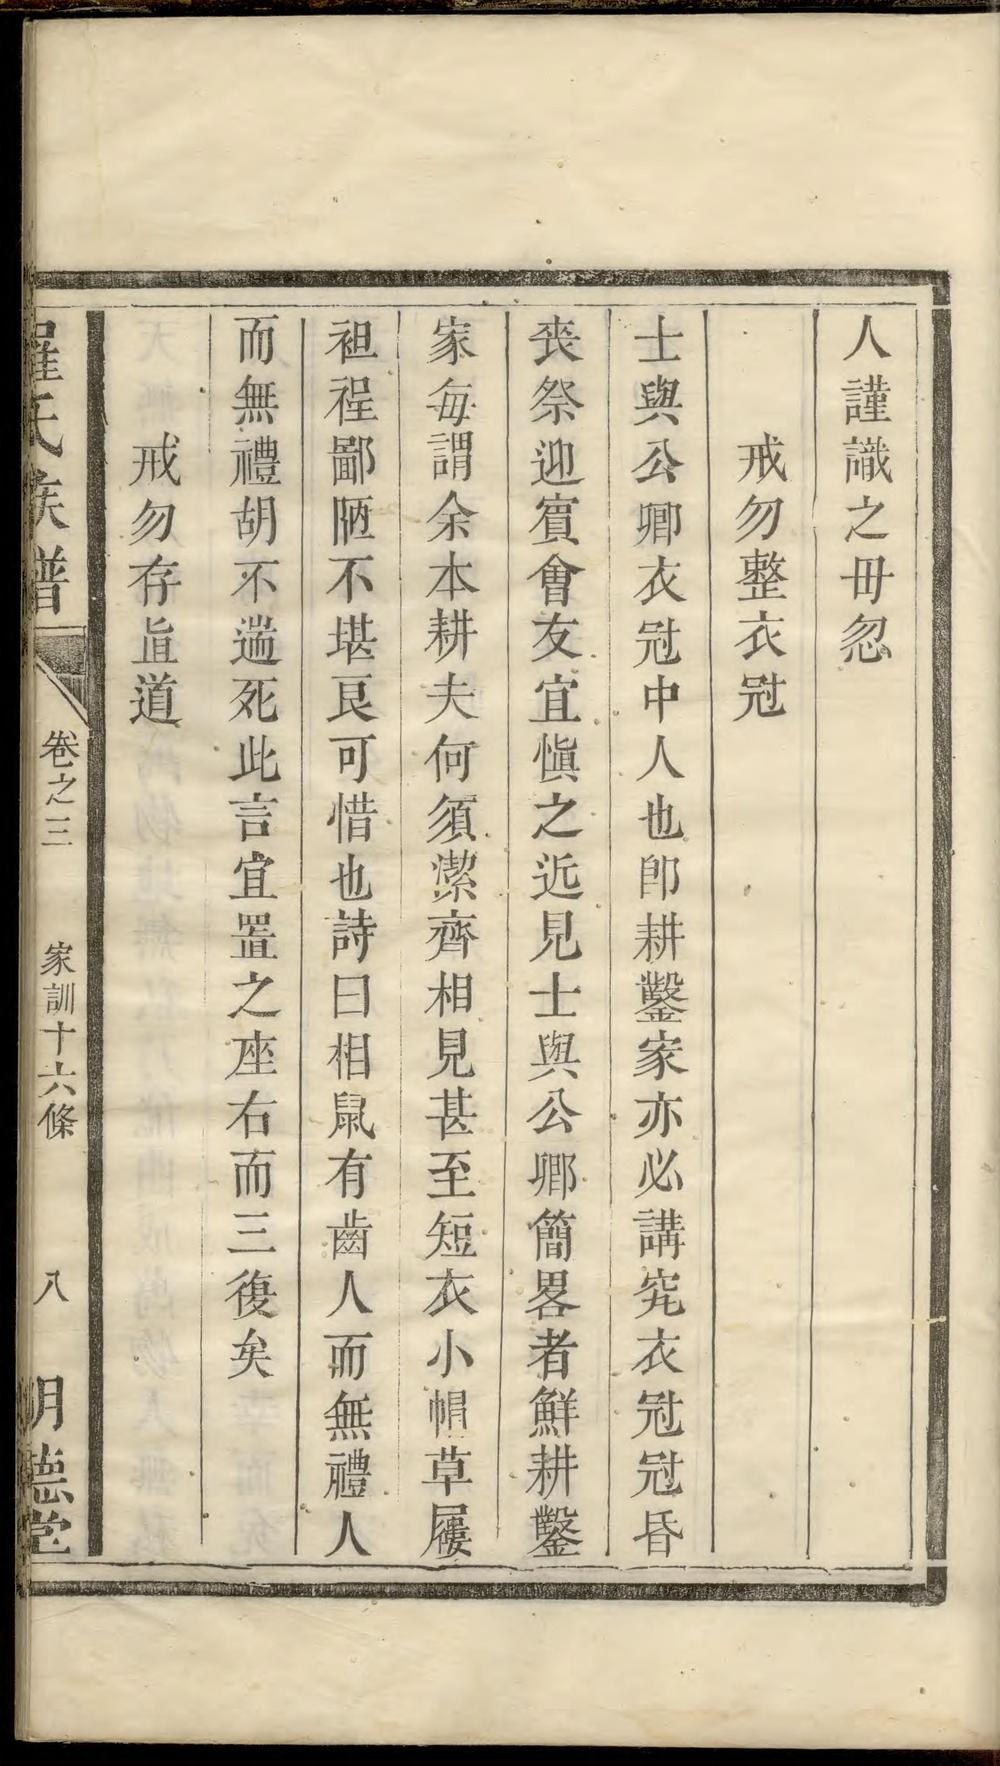 人謹識之毋忽
戒勿整衣冠
士與公卿衣冠中人也卽耕鑿家亦必講究衣冠冠昏
喪祭迎賓會友宜愼之近見士與公卿簡畧者鮮耕鑿
家每謂余本耕夫何須潔齊相見甚至短衣小帽草屨
袒裎鄙陋不堪良可惜也詩曰相鼠有齒人而無禮人
而無禮胡不遄死此言宜置之座右而三復矣
戒勿存直道
羅氏族譜 卷之三 家訓十六條 八 明德堂